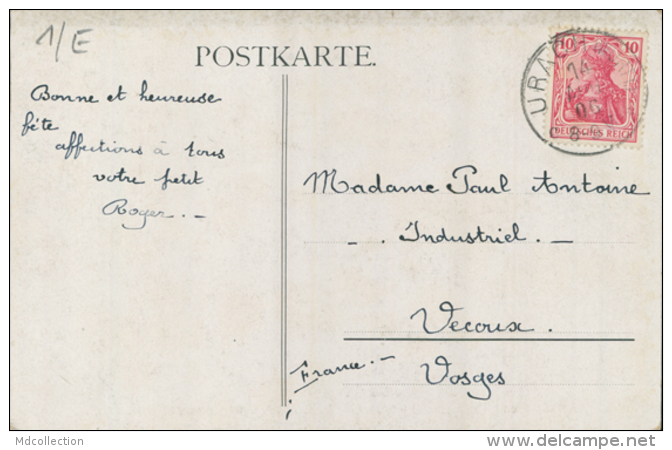 1/E
POSTKARTE.
Bonne et heureuse
fête
affections à tous
votre petit
Roger. -
10 10
DEUTSCHES REICH
URACH
Madame Paul Antoine
- . Industriel. -
Vecoux.
France. -
Vosges
Mdcollection
www.delcampe.net